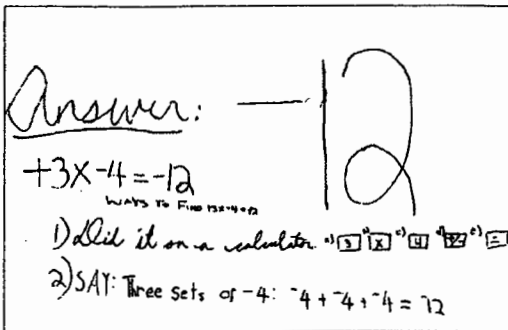 Answer: -12
+3x-4=-12
WAYS TO FIND +3x-4=-12
1) Did it on a calculator a) 3 b) x c) 4 d) +/- e) =
2) SAY: Three sets of -4: -4 + -4 + -4 = -12